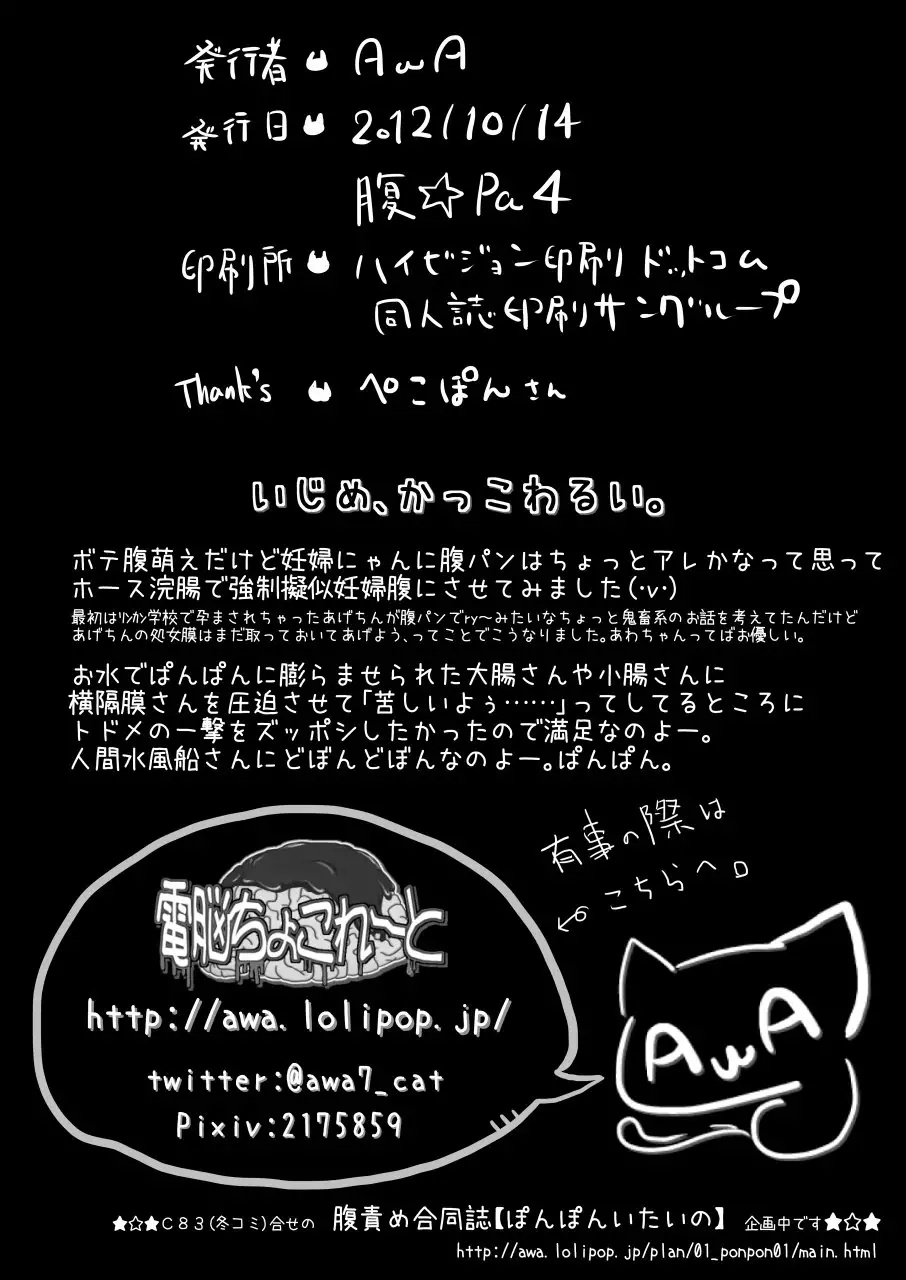 発行者 AwA
発行日 2012/10/14
腹☆Pa4
印刷所 ハイビジョン印刷ドットコム
同人誌印刷サングループ
Thank's ぺこぽんさん
いじめ、かっこわるい。
ボテ腹萌えだけど妊婦にゃんに腹パンはちょっとアレかなって思って
ホース浣腸で強制擬似妊婦腹にさせてみました(·v·)
最初はﾘﾝｶﾝ学校で孕まされちゃったあげちんが腹パンでry～みたいなちょっと鬼畜系のお話を考えてたんだけど
あげちんの処女膜はまだ取っておいてあげよう、ってことでこうなりました。あわちゃんってばお優しい。
お水でぱんぱんに膨らませられた大腸さんや小腸さんに
横隔膜さんを圧迫させて「苦しいよぅ……」ってしてるところに
トドメの一撃をズッポシしたかったので満足なのよー。
人間水風船さんにどぼんどぼんなのよー。ぱんぱん。
有事の際は
こちらへ。
電脳ちょこれーと
http://awa.lolipop.jp/
twitter:@awa7_cat
Pixiv:2175859
AwA
★☆★C83(冬コミ)合せの 腹責め合同誌【ぽんぽんいたいの】 企画中です★☆★
http://awa.lolipop.jp/plan/01_ponpon01/main.html